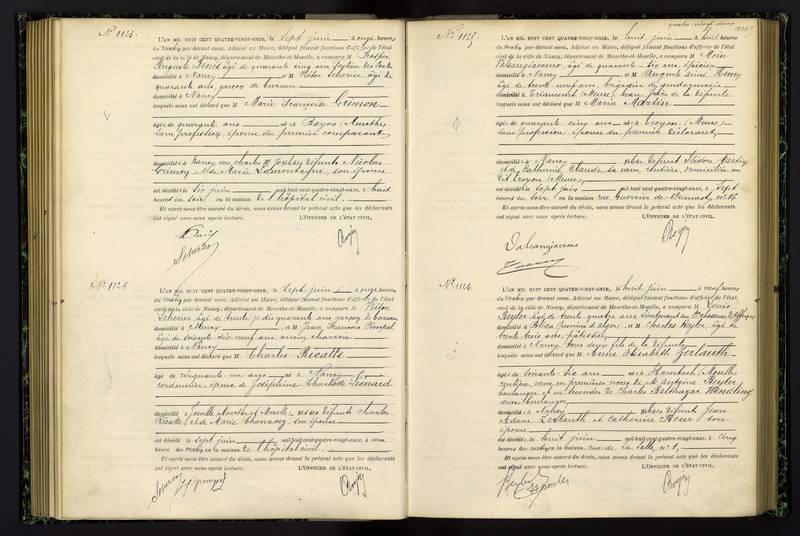 N° 1123.
L'AN MIL HUIT CENT QUATRE-VINGT-ONZE, le sept juin à onze heures
du matin par devant nous, Adjoint au Maire, délégué faisant fonctions d'officier de l'état
civil de la ville de Nancy, département de Meurthe-et-Moselle, a comparu M Prosper
Auguste âgé de quarante cinq ans
domicilié à Nancy et M Victor Scherrer, âgé de
quarante ans, garçon de bureau
domicilié à Nancy
lesquels nous ont déclaré que M Marie Françoise Grimon
âgée de quarante ans née à Bayon (Meurthe)
sans profession, épouse du premier comparant
domiciliée à Nancy, rue fille des défunts Nicolas
Grimon et de Marie son épouse
est décédée le six juin mil huit cent quatre-vingt-onze, à huit
heures du soir en la maison de l'hôpital civil.
Et après nous être assuré du décès, nous avons dressé le présent acte que les déclarants
ont signé avec nous après lecture. L'OFFICIER DE L'ÉTAT CIVIL,
N° 1124
L'AN MIL HUIT CENT QUATRE-VINGT-ONZE, le sept juin à onze heures
du matin par devant nous, Adjoint au Maire, délégué faisant fonctions d'officier de l'état
civil de la ville de Nancy, département de Meurthe-et-Moselle, a comparu M Victor
Scherrer âgé de quarante ans, garçon de bureau
domicilié à Nancy et M Jean François
âgé de soixante dix neuf ans, ancien charron
domicilié à Nancy
lesquels nous ont déclaré que M Charles Ricatte
âgé de cinquante un ans né à Nancy
cordonnier, époux de Joséphine Charlotte Lienard
domicilié à fils des défunts Charles
Ricatte et de Marie son épouse
est décédé le sept juin mil huit cent quatre-vingt-onze, à
heures du matin en la maison de l'hôpital civil.
Et après nous être assuré du décès, nous avons dressé le présent acte que les déclarants
ont signé avec nous après lecture. L'OFFICIER DE L'ÉTAT CIVIL,
quatre vingt
N° 1125.
L'AN MIL HUIT CENT QUATRE-VINGT-ONZE, le huit juin à huit heures
du matin par devant nous, Adjoint au Maire, délégué faisant fonctions d'officier de l'état
civil de la ville de Nancy, département de Meurthe-et-Moselle, a comparu M
âgé de quarante six ans, épicier
domicilié à Nancy et M Auguste
âgé de trente neuf ans, brigadier de gendarmerie
domicilié à (Meuse), beau frère de la défunte
lesquels nous ont déclaré que M Maria Martin
âgée de quarante cinq ans née à Troyon (Meuse)
sans profession épouse du premier déclarant,
domiciliée à Nancy fille de défunt Isidore Martin
et de Catherine Claude sa veuve, rentière, domiciliée au
dit Troyon (Meuse)
est décédée le sept juin mil huit cent quatre-vingt-onze, à sept
heures du soir en la maison rue Guerrier de Dumast, n° 16
Et après nous être assuré du décès, nous avons dressé le présent acte que les déclarants
ont signé avec nous après lecture. L'OFFICIER DE L'ÉTAT CIVIL,
N° 1126.
L'AN MIL HUIT CENT QUATRE-VINGT-ONZE, le huit juin à neuf heures
du matin par devant nous, Adjoint au Maire, délégué faisant fonctions d'officier de l'état
civil de la ville de Nancy, département de Meurthe-et-Moselle, a comparu M Louis
Beyler, âgé de trente quatre ans, lieutenant au d'Afrique
domicilié à Blida (province d'Alger) et M Charles Beyler, âgé de
trente trois ans, pâtissier
domicilié à Nancy tous deux fils de la défunte
lesquels nous ont déclaré que M Anne Elisabeth Zerlauth
âgée de soixante six ans née à Hambach (Moselle)
rentière, veuve en premières noces de M. Antoine Beyler,
boulanger et en secondes de Charles Balthazar Wendling
aussi boulanger
domiciliée à Nancy fille des défunts Jean
Adam Zerlauth et Catherine son
épouse
est décédée le huit juin mil huit cent quatre-vingt-onze, à cinq
heures du matin en la maison rue de la salle, n° 1,
Et après nous être assuré du décès, nous avons dressé le présent acte que les déclarants
ont signé avec nous après lecture. L'OFFICIER DE L'ÉTAT CIVIL,